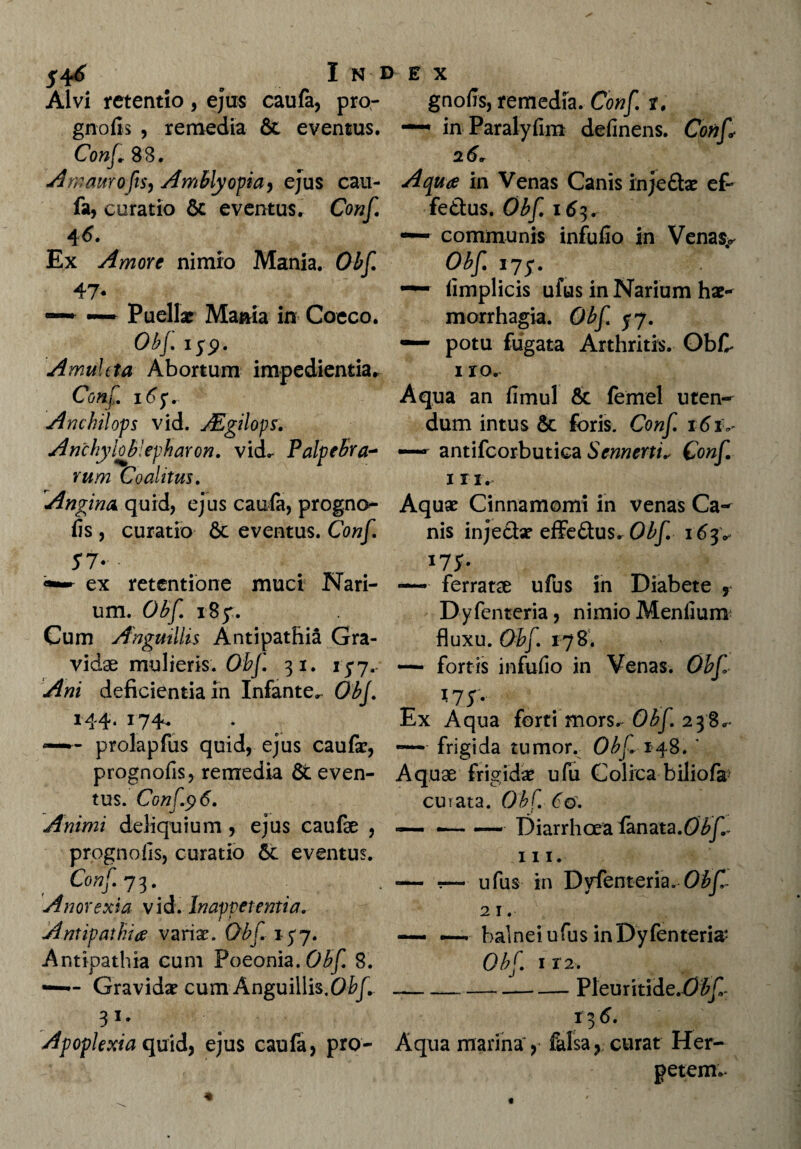 546 INDEX
Alvi retentio , ejus cauſa, pro-
gnoſis , remedia & eventus.
Conſ. 88.
Amauroſis, Amblyopia, ejus cau-
ſa, curatio & eventus. Conſ.
46.
Ex Amore nimio Mania. Obſ.
47.
— — Puellæ Mania in Cocco.
Obſ. 159.
Amuleta Abortum impedientia.
Conſ. 165.
Anchilops vid. Ægilops.
Anchylobleph­aron. vid. Palpebra-
rum Coalitus.
Angina quid, ejus cauſa, progno-
ſis , curatio & eventus. Conſ.
57.
— ex retentione muci Nari-
um. Obſ. 185.
Cum Anguillis Antipathiâ Gra-
vidæ mulieris. Obſ. 31. 157.
Ani deficientia in Infante. Obſ.
144. 174.
—— prolapſus quid, ejus cauſæ,
prognoſis, remedia & even-
tus. Conſ.96.
Animi deliquium , ejus cauſæ ,
prognoſis, curatio & eventus.
Conſ. 73.
Anorexia vid. Inappetentia.
Antipathiæ variæ. Obſ. 157.
Antipathia cum Poeonia. Obſ. 8.
—— Gravidæ cum Anguillis. Obſ.
31.
Apoplexia quid, ejus cauſa, pro-
gnoſis, remedia. Conſ. 1.
— in Paralyſim deſinens. Conſ.
26.
Aquæ in Venas Canis injectæ ef-
fectus. Obſ. 163.
— communis infuſio in Venas.
Obſ. 175.
— ſimplicis uſus in Narium hæ-
morrhagia. Obſ. 57.
— potu fugata Arthritis. Obſ.
110.
Aqua an ſimul & ſemel uten-
dum intus & foris. Conſ. 161.
— antiſcorbutica Sennerti. Conſ.
111.
Aquæ Cinnamomi in venas Ca-
nis injectæ effectus. Obſ. 163.
175.
— ferratæ uſus in Diabete ,
Dyſenteria, nimio Menſium
fluxu. Obſ. 178.
— fortis infuſio in Venas. Obſ.
175.
Ex Aqua forti mors. Obſ. 238.
— frigida tumor. Obſ. 148.
Aquæ frigidæ uſu Colica bilioſa
curata. Obſ. 60.
— — — Diarrhœa ſanata. Obſ.
111.
— — uſus in Dyſenteria. Obſ.
21.
— — balnei uſus in Dyſenteria
Obſ. 112.
— — — — — Pleuritide. Obſ.
136.
Aqua marina , ſalsa, curat Her-
petem.